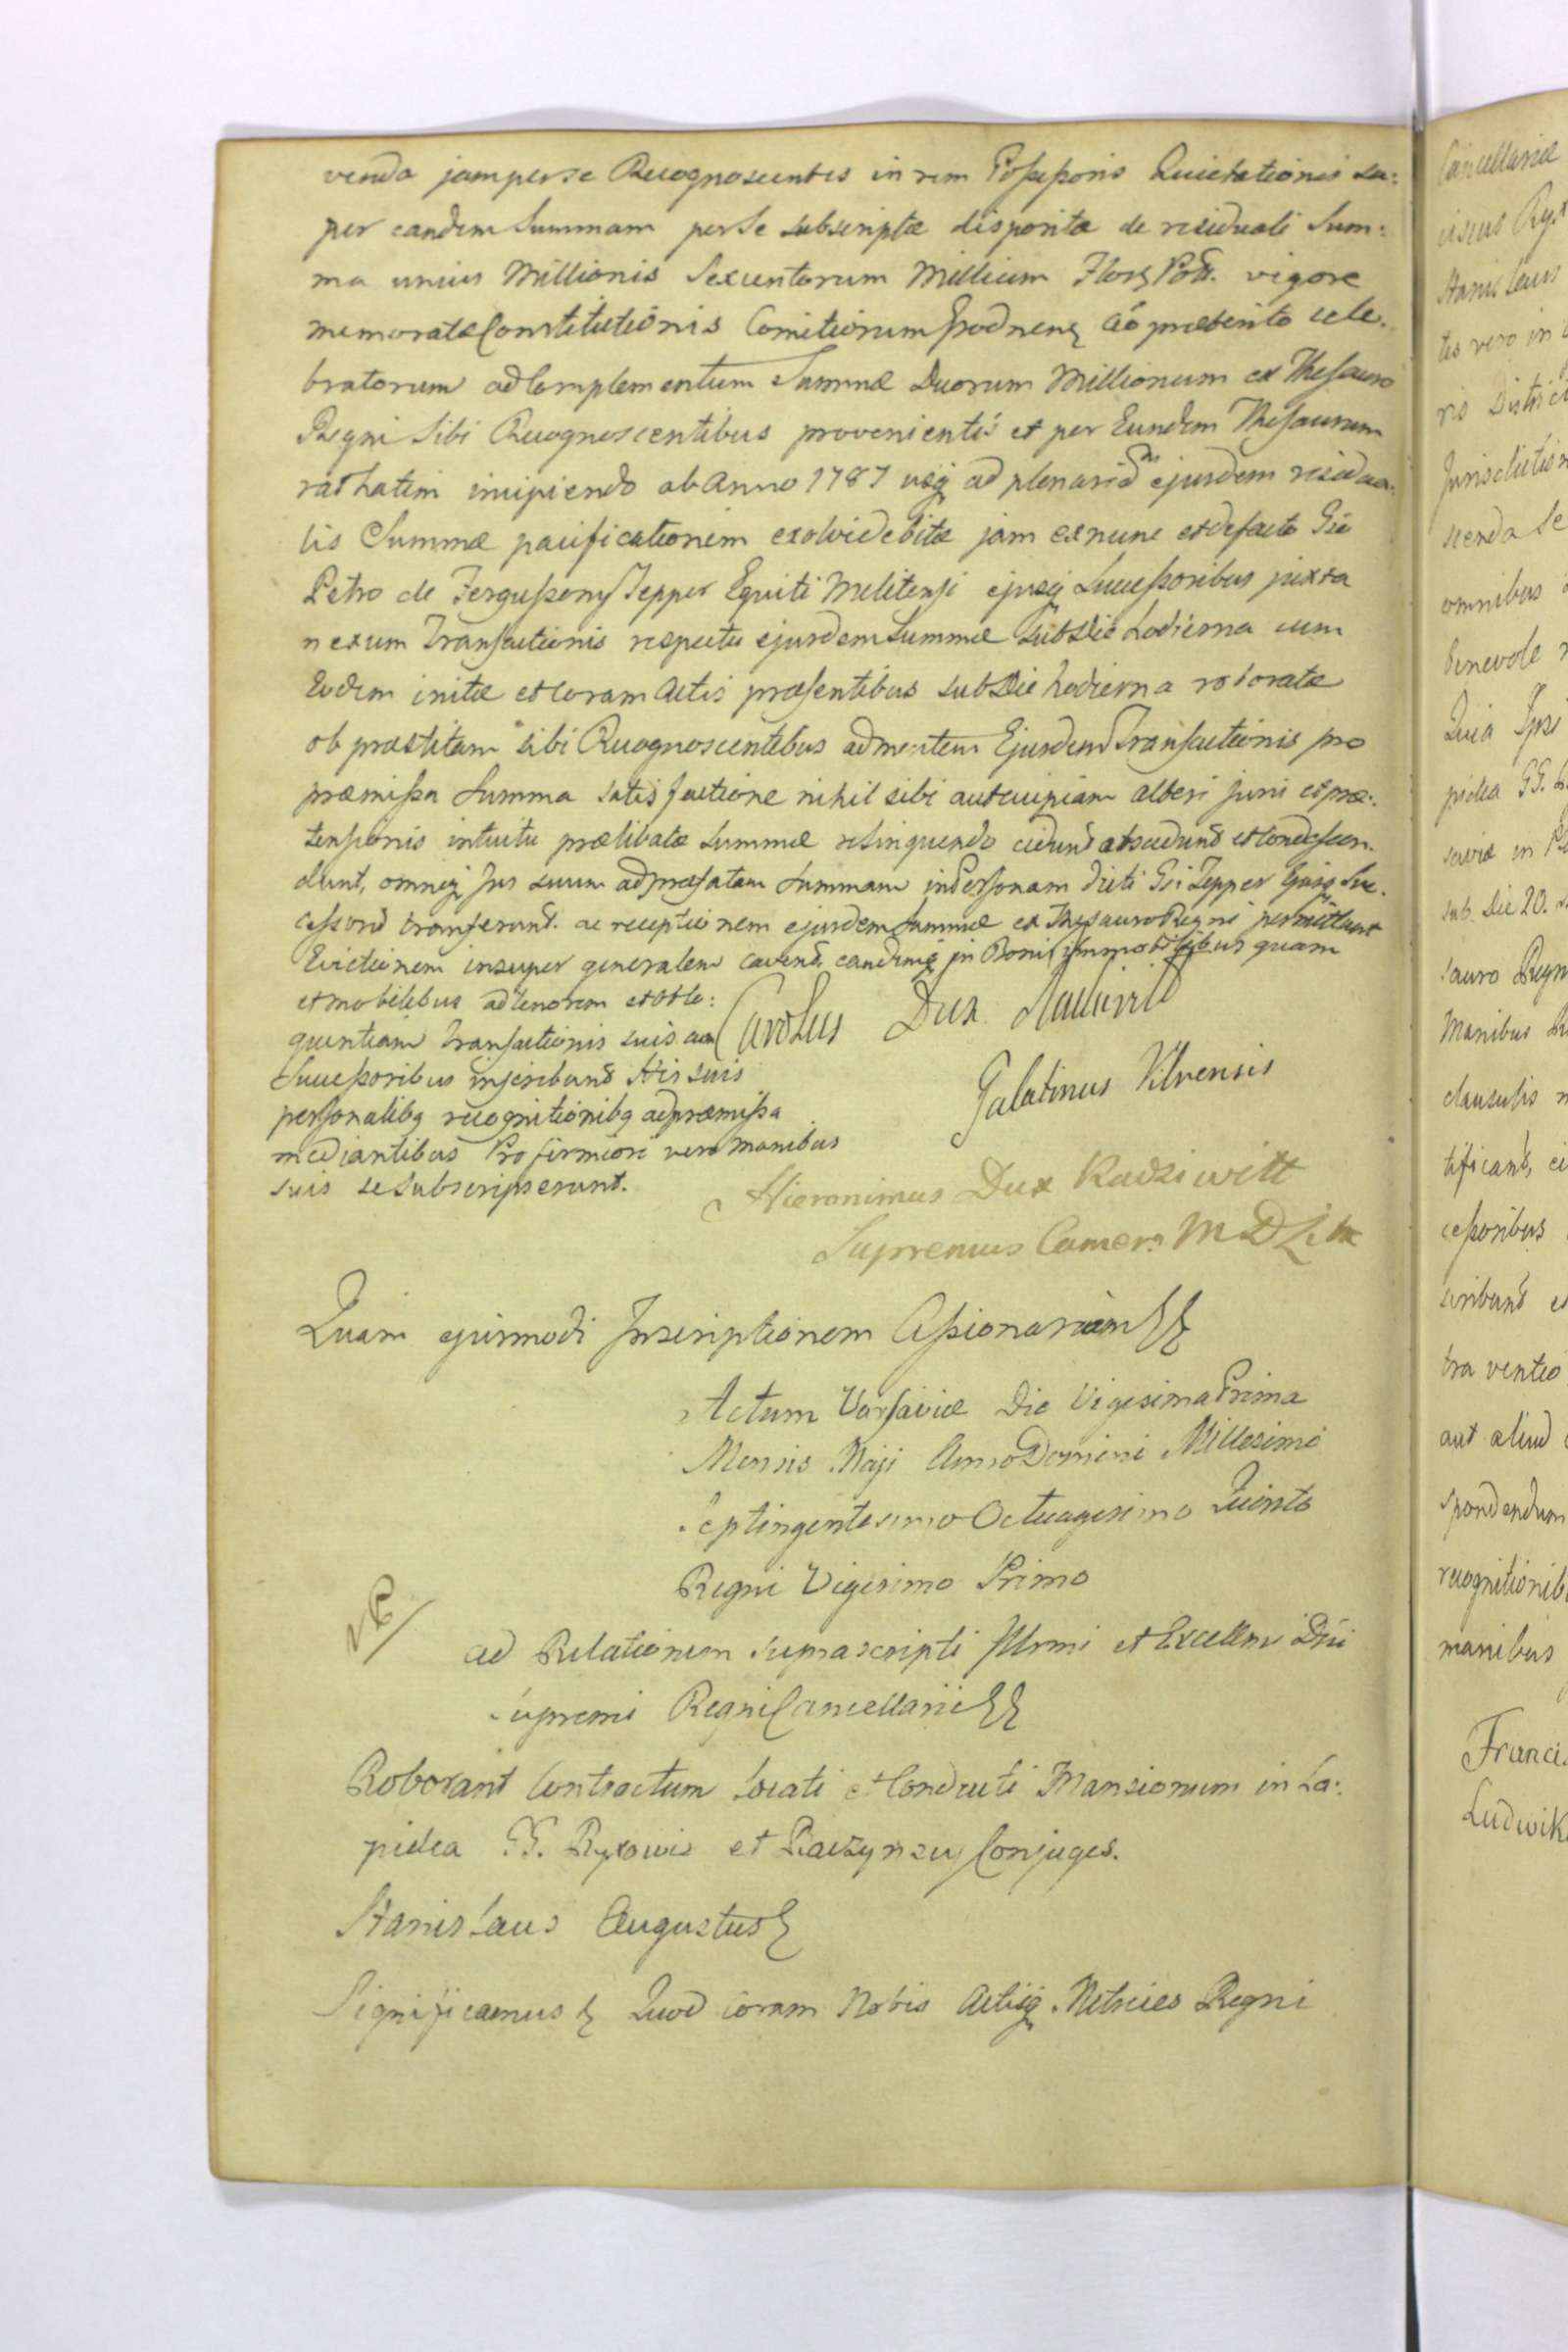 venda jam per se Recognoscentes in rem Possessoris Quietationis su:
per eandem Summam per Se subscriptæ disposita de residuali Sum:
ma unius Millionis Sexcentorum Millium Flor Poll. vigore
memoratæ Constitutionis Comitiorum Grodnen ao præterito cele.
bratorum ad Complementum Summæ Duorum Millionum ex Thesauro
Regni Sibi Recognoscentibus provenientis et per Eundem Thesaurum
rathatim incipiendo ab Anno 1787 usq ad plenariam ejusdem residua:
lis Summæ pacificationem exolvi debitæ jam ex nunc et de facto Gso
Petro de Fergussony Tepper Equiti Melitensi ejusq Successoribus juxta
nexum Transactionis respectu ejusdem Summæ sub die hodierna cum
Eodem initæ et coram Actis præsentibus sub Die hodierna roboratæ
ob præstitam sibi Recognoscentibus ad mentem Ejusdem Transactionis pro
præmissa Summa satisfactione nihil sibi aut cuipiam alteri juris et præ:
tensionis intuitu prælibatæ Summæ relinquendo cedunt abscedunt et condescen.
dunt, omneq Jus suum ad præfatam Summam in Personam dicti Gsi Tepper Ejusq Suc.
cessorum transferunt ac receptionem ejusdem Summæ ex Thesauro Regni permittunt
Evictionem insuper generalem cavent, eandemq in Bonis immobilibus quam
et mobilibus ad tenorem et ob lo:
quentiam Transactionis suis ac
Successoribus inscribunt His suis
personalibq recognitionibq ad præmissa
mediantibus Pro firmiori vero manibus
suis se subscripserunt.
Carolus Dux Radziwil
Palatinus Vilnensis
Hieronimus Dux Radziwill
Supremus Camer: M D Litt
Quam ejusmodi Inscriptionem Cessionariam
Actum Varsaviæ Die Vigesima Prima
Mensis Maji Anno Domini Millesimo
Septingentesimo Octuagesimo Quinto
Regni Vigesimo Primo
ad Relationem suprascripti Illmi et Excellmi Dni
Supremi Regni Cancellarii
Roborant Contractum Locati et Conducti Mansionum in La:
pidea GG. Ryxowie et Raczynscy Conjuges.
Stanislaus Augustus
Significamus Quod coram Nobis Actisq Metrices Regni
Cancellariæ
Stanislaus
tes vero in
ris District
omnibus
benevole
Quia Ipsi
pidea GG.
saviæ in
sub. Die 20.
sauro Regn
Manibus
clausulis
tificant,
cessoribus
scribunt
tra ventio
aut aliud
spondendum
recognitionib
manibus
Francis
Ludwik